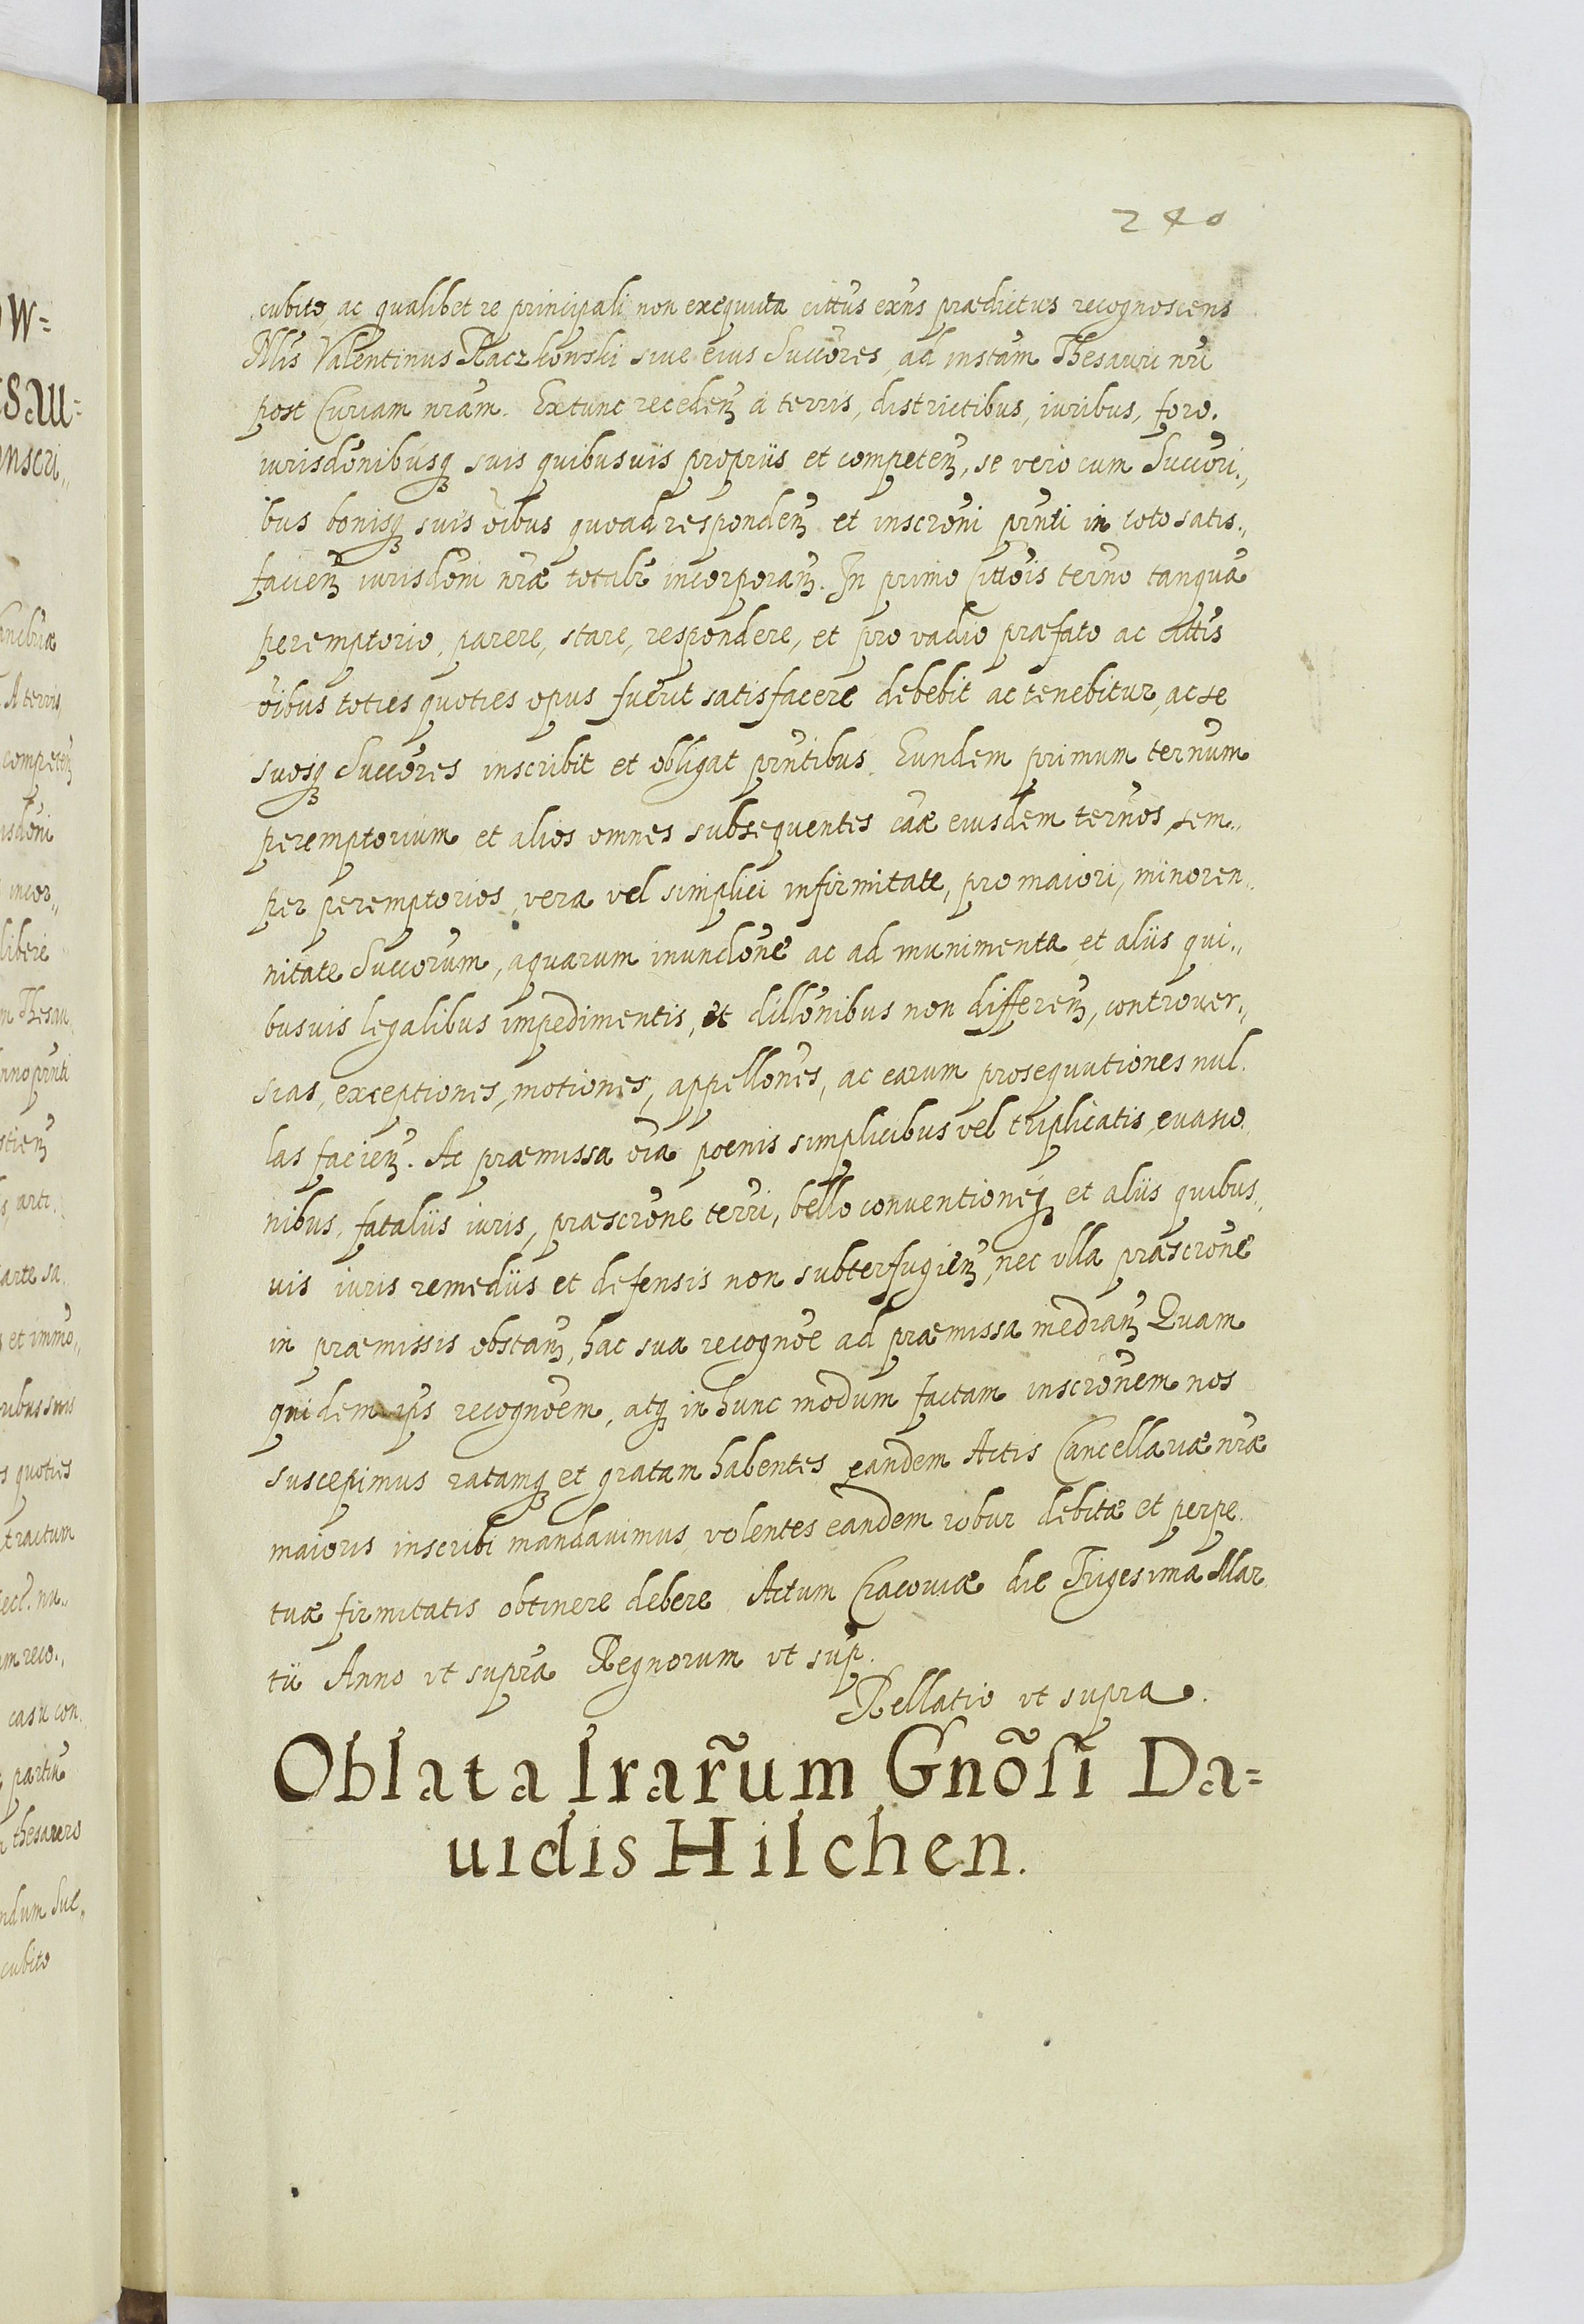 240
cubito, ac qualibet re principali non exequuta cittũs exñs prædictus recognoscens
Nlis Valentinus Raczkonski siue eius Succores, ad instam Thesauri nri
post Curiam nram. Extunc recedeñ a terris, districtibus, iuribus, foro.
iurisdonibusq suis quibusuis propriis et competeñ, se vero cum Succori„
bus bonisq suis oibus quoad respondeñ et inscroni pnti in toto satis„
facieñ iurisdoni nræ totalr incorporañ. In primo Cittois terno tanqua
peremptorio, parere, stare, respondere, et pro vadio præfato ac alĩis
oibus toties quoties opus fuerit satisfacere debebit ac tenebitur, ac se
suosq Succores inscribit et obligat pntibus. Eundem primum ternum
peremptorium et alios omnes subsequentes caæ eiusdem ternos, sem„
per peremptorios, vera vel simplici infirmitate, pro maiori, minoren„
nitate Succorum, aquarum inundone ac ad munimenta et aliis qui„
busuis legalibus impedimentis, et dillonibus non differeñ, controuer„
sias, exceptiones, motiones, appellones, ac earum prosequutiones nul„
las facieñ. Ac præmissa oia poenis simplicibus vel triplicatis, euasio„
nibus, fataliis iuris, præscrone terri, bello conventioneq et aliis quibus„
uis iuris remediis et defensis non subterfugieñ, nec vlla præscrone
in præmissis obstañ, hac sua recognoe ad præmissa mediañ Quam
quidem ips recognoem, atq in hunc modum factam inscronem nos
suscepimus ratamq et gratam habentes eandem Actis Cancellariæ nræ
maioris inscribi mandauimus, volentes eandem robur debitæ et perpe„
tuæ firmitatis obtinere debere Actum Cracouiæ die Trigesima Mar„
tii Anno vt supra Regnorum vt sup.
Rellatio vt supra.
Oblata lrarũm Gnõsi Da=
uidis Hilchen.